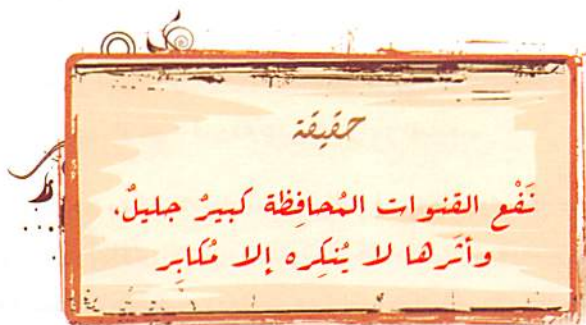 حقيقة
نَفْع القنوات المُحافِظة كبيرٌ جليلٌ،
وأثَرها لا يُنكِره إلا مُكابِر